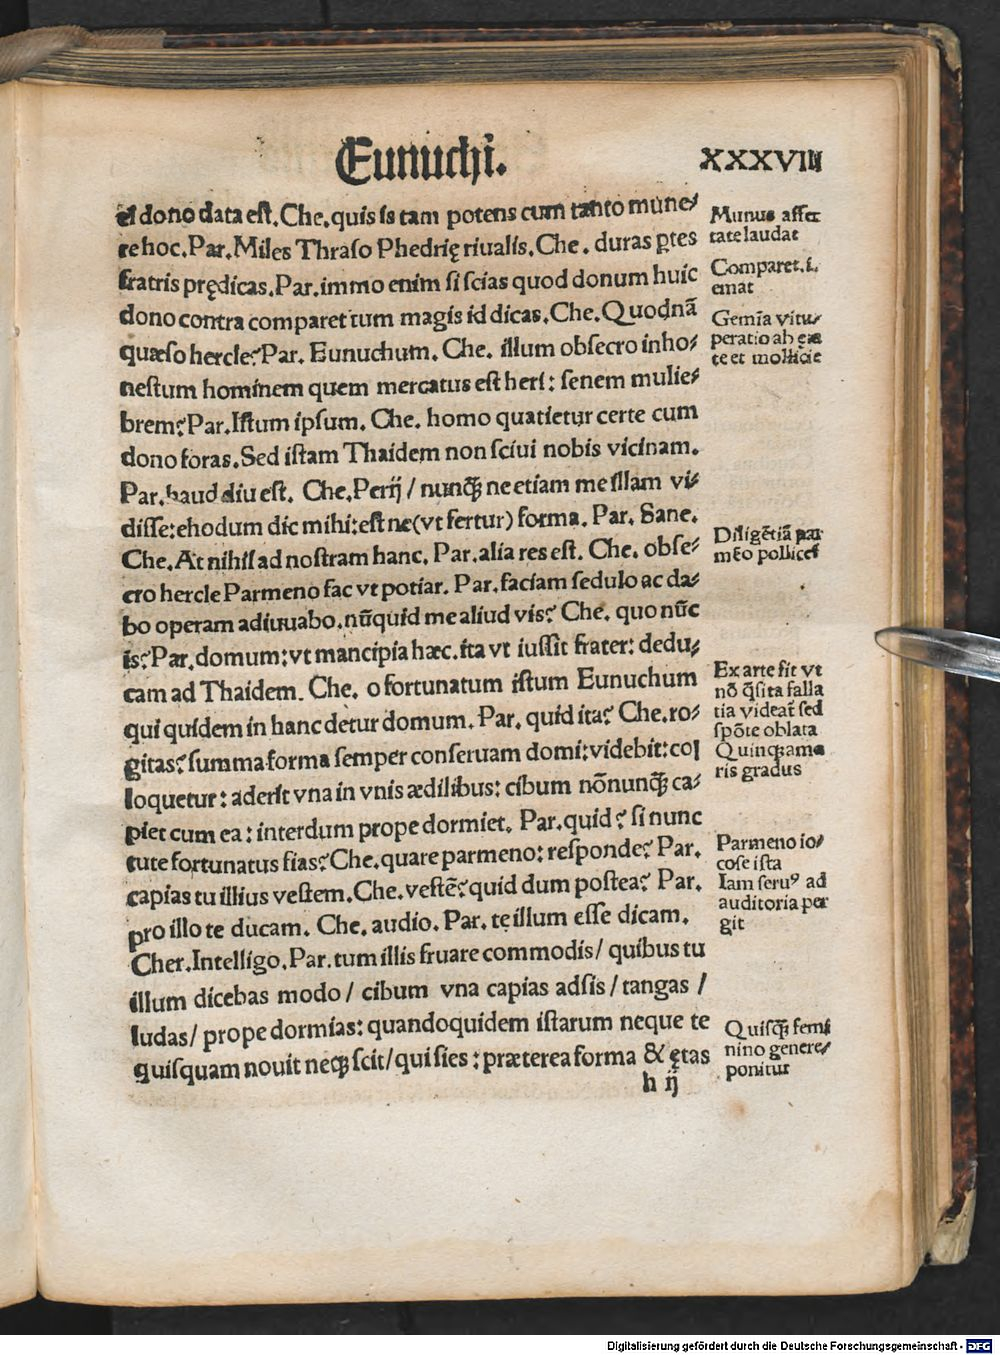 Eunuchi.
XXXVIII
ei dono data est. Che. quis is tam potens cum tanto mune⸗
re hoc. Par. Miles Thraso Phedrię riualis. Che. duras ꝑtes
fratris prędicas. Par. immo enim si scias quod donum huic
dono contra comparet tum magis id dicas. Che. Quodnā
quæso hercle? Par. Eunuchum. Che. illum obsecro inho⸗
nestum hominem quem mercatus est heri: senem mulie⸗
brem? Par. Istum ipsum. Che. homo quatietur certe cum
dono foras. Sed istam Thaidem non sciui nobis vicinam.
Par. haud diu est. Che. Perij / nunꝙ̃ ne etiam me illam vi⸗
disse: ehodum dic mihi: est ne (vt fertur) forma. Par. Sane.
Che. At nihil ad nostram hanc. Par. alia res est. Che. obse⸗
cro hercle Parmeno fac vt potiar. Par. faciam sedulo ac da⸗
bo operam adiuuabo. nūquid me aliud vis? Che. quo nūc
is? Par. domum: vt mancipia hæc. ita vt iussit frater: dedu⸗
cam ad Thaidem. Che. o fortunatum istum Eunuchum
qui quidem in hanc detur domum. Par. quid ita? Che. ro⸗
gitas? summa forma semper conseruam domi: videbit: col
loquetur: aderit vna in vnis ædilibus: cibum nōnunꝙ̃ ca⸗
piet cum ea: interdum prope dormiet. Par. quid? si nunc
tute fortunatus fias? Che. quare parmeno: responde? Par.
capias tu illius vestem. Che. vestē? quid dum postea? Par.
pro illo te ducam. Che. audio. Par. te illum esse dicam.
Cher. Intelligo. Par. tum illis fruare commodis / quibus tu
illum dicebas modo / cibum vna capias adsis / tangas /
ludas / prope dormias: quandoquidem istarum neque te
quisquam nouit neqꝫ scit / qui sies: præterea forma & ętas
h ij
Munus affec
tate laudat
Comparet. i.
emat
Gemīa vitu⸗
peratio ab ęta
te et mollicie
Diligētiā par
mēo pollicet
Ex arte fit vt
nō q̄sita falla
tia videat̄ sed
spōte oblata
Quinqꝫ ama
ris gradus
Parmeno io⸗
cose ista
Iam seruꝰ ad
auditoria per
git
Quisꝙ̃ femi
nino genere⸗
ponitur
Digitalisierung gefördert durch die Deutsche Forschungsgemeinschaft - DFG